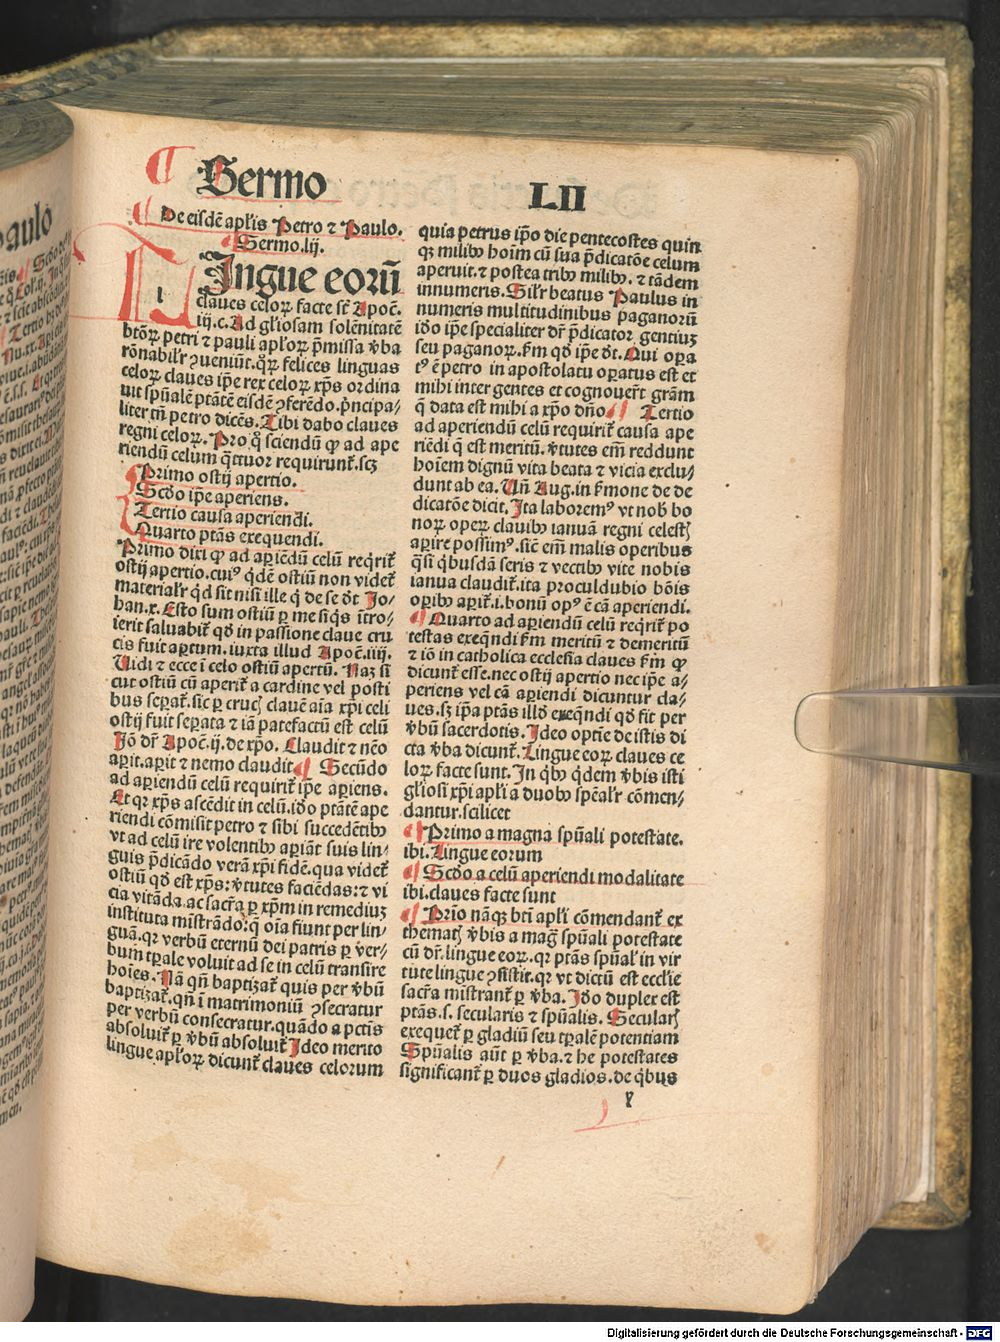 Sermo LII
De eisdē apl̄is Petro ⁊ Paulo.
Sermo.lij.
LIngue eorū
claues celoꝝ facte st̄ Apoc̄.
iij.c. Ad gl̄iosam solēnitatē
btōꝝ petri ⁊ pauli apl̄oꝝ p̄missa v̄ba
rōnabilr̄ ꝯueniūt. qꝝ felices linguas
celoꝝ claues ip̄e rex celoꝝ xp̄s ordina
uit sp̄nālē ptātē eisdē ꝯferēdo. p̄ncipa/
liter tn̄ petro dicēs. Tibi dabo claues
regni celoꝝ. Pro q̊ sciendū ꝙ ad ape
riendū celum q̄ttuor requirunt̄. scꝫ
Primo ostij apertio.
Scd̄o ip̄e aperiens.
Tertio causa aperiendi.
Quarto ptās exequendi.
Primo dixi ꝙ ad apiēdū celū reqrit̄
ostij apertio. cuiꝰ qdē ostiū non videt̄
materialr̄ qd sit nisi ille q̇ de se dt̄ Jo/
han.x. Ego sum ostiū p me siqs ītro/
ierit saluabit̄ qd̄ in passione claue cru
cis fuit aptum. iuxta illud Apoc̄.iiij.
Uidi ⁊ ecce ī celo ostiū apertū. Naꝫ si
cut ostiū cū aperit̄ a cardine vel posti
bus sepat̄. sic p crucꝭ clauē aīa xp̄i celi
ostij fuit sepata ⁊ iā patefactū est celū
Jō dr̄ Apoc̄.ij. de xp̄o. Claudit ⁊ nēo
apit. apit ⁊ nemo claudit ¶ Secūdo
ad apiendū celū requirit̄ ip̄e apiens.
Et qꝛ xp̄s ascēdit in celū. iō ptātē ape
riendi cōmisit petro ⁊ sibi succedētibꝰ
vt ad celū ire volentibꝰ apiāt suis lin/
guis p̄dicādo verā xp̄i fidē. qua videt̄
ostiū qd̄ est xp̄s: v̄tutes faciēdas: ⁊ vi
cia vitāda. ac sacr̄a p xp̄m in remediuꝫ
instituta mīstrādo: q̄ oīa fiunt per lin/
guā. qꝛ verbū eternū dei patris p ver/
bum tpale voluit ad se in celū transire
hoīes. Nā qn̄ baptizat̄ quis per v̄bū
baptizat̄. qn̄ ī matrimoniū ꝯsecratur
per verbū consecratur. quādo a pctīs
absoluit̄ p v̄bū absoluit̄ Jdeo merito
lingue apl̄oꝝ dicunt̄ claues celorum
quia petrus ip̄o die pentecostes quin
qꝫ milibꝰ hoīm cū sua p̄dicatōe celum
aperuit. ⁊ postea tribꝰ milibꝰ. ⁊ tādem
innumeris. Silr̄ beatus Paulus in
numeris multitudinibus paganorū
iō ip̄e specialiter dr̄ p̄dicator gentiuꝫ
seu paganoꝝ. ẜm qd̄ ip̄e dt̄. Qui opa
tꝰ ē petro in apostolatu opatus est et
mihi inter gentes et cognouer̄t gr̄am
q̄ data est mihi a xp̄o dn̄o ¶ Tertio
ad aperiendū celū requirit̄ causa ape
riēdi q̄ est meritū. v̄tutes em̄ reddunt
hoīem dignū vita beata ⁊ vicia exclu/
dunt ab ea. Un̄ Aug. in ẜmone de de
dicatōe dicit. Jta laboremꝰ vt nob̄ bo
noꝝ opeꝝ clauibꝰ ianuā regni celestꝭ
apire possimꝰ. sic̄ em̄ malis operibus
q̄si q̇busdā seris ⁊ vectibꝰ vite nobis
ianua claudit̄. ita proculdubio bōis
opibꝰ apit̄.i. bonū opꝰ ē cā aperiendi.
¶ Quarto ad apiendū celū reqrit̄ po
testas exeqn̄di ẜm meritū ⁊ demeritū
⁊ iō in catholica ecclesia claues ẜm ꝙ
dicunt̄ esse. nec ostij apertio nec ip̄e a/
periens vel cā apiendi dicuntur cla/
ues. sꝫ ip̄a ptās illd̄ exeqn̄di qd̄ fit per
v̄bū sacerdotis. Jdeo optīe de istis di
cta v̄ba dicunt̄. Lingue eoꝝ claues ce
loꝝ facte sunt. Jn q̇bꝰ q̇dem v̄bis isti
gl̄iosi xp̄i apl̄i a duobꝰ spēalr̄ cōmen/
dantur. scilicet
¶ Primo a magna sp̄uāli potestate.
ibi. Lingue eorum
¶ Scd̄o a celū aperiendi modalitate
ibi. claues facte sunt
¶ Prīo nāqꝫ btī apl̄i cōmendant̄ ex
thematꝭ v̄bis a maḡ sp̄uāli potestate
cū dr̄. lingue eoꝝ. qꝛ ptās sp̄uāl̄ in vir
tute lingue ꝯsistit. qꝛ vt dictū est ecclīe
sacr̄a mīstrant̄ p v̄ba. Jdo duplex est
ptās.s. secularis ⁊ sp̄uālis. Secularꝭ
exequet̄ p gladiū seu tpalē potentiam
Sp̄uālis aūt p v̄ba. ⁊ he potestates
significant̄ p duos gladios. de q̇bus
Digitalisierung gefördert durch die Deutsche Forschungsgemeinschaft - DFG